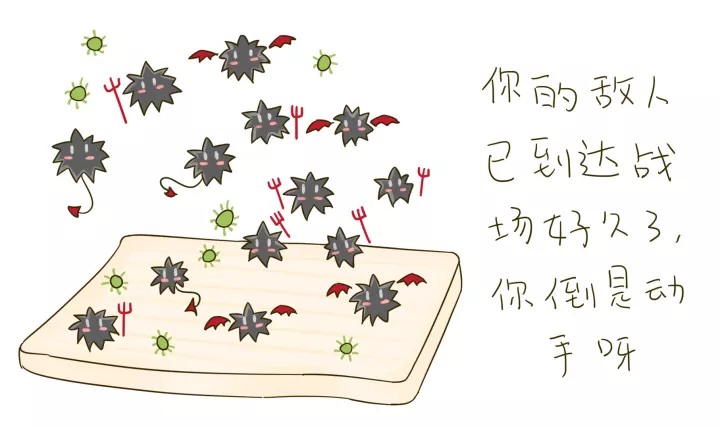 你的敌人
已到达战
场好久了,
你倒是动
手呀